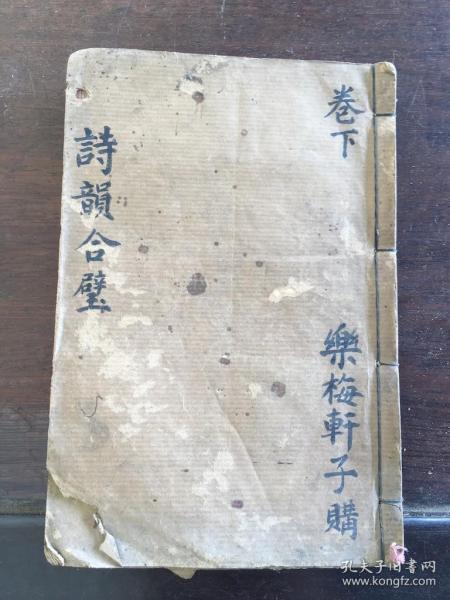 卷下
樂梅軒子購
詩韻合璧
孔夫子旧书网
www.kongfz.com